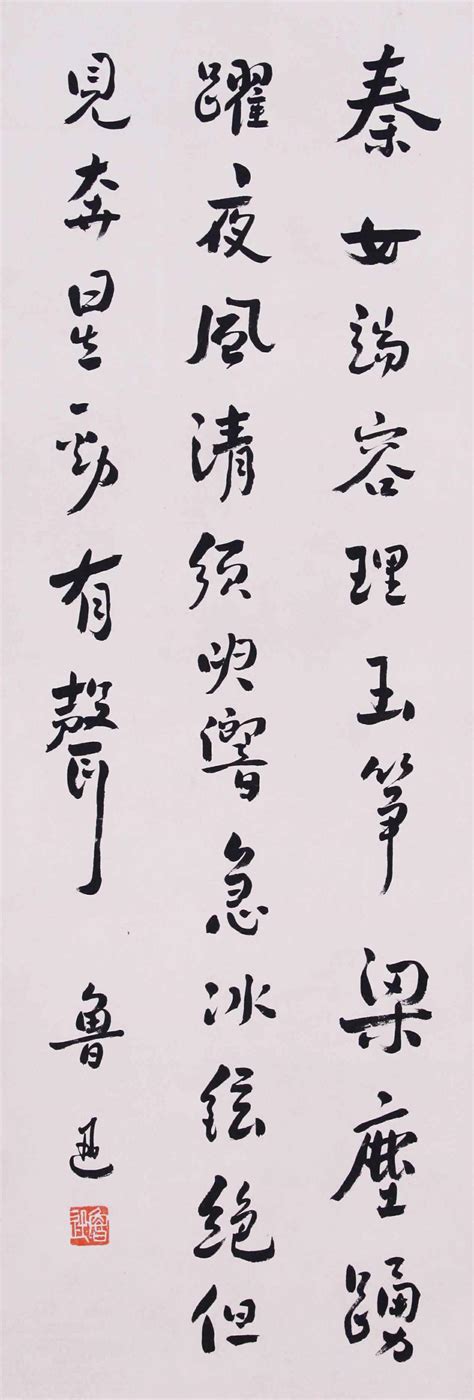 秦女端容理玉筝梁塵踴
躍夜風清須臾響急冰絃絶但
見奔星勁有聲
魯迅
魯迅